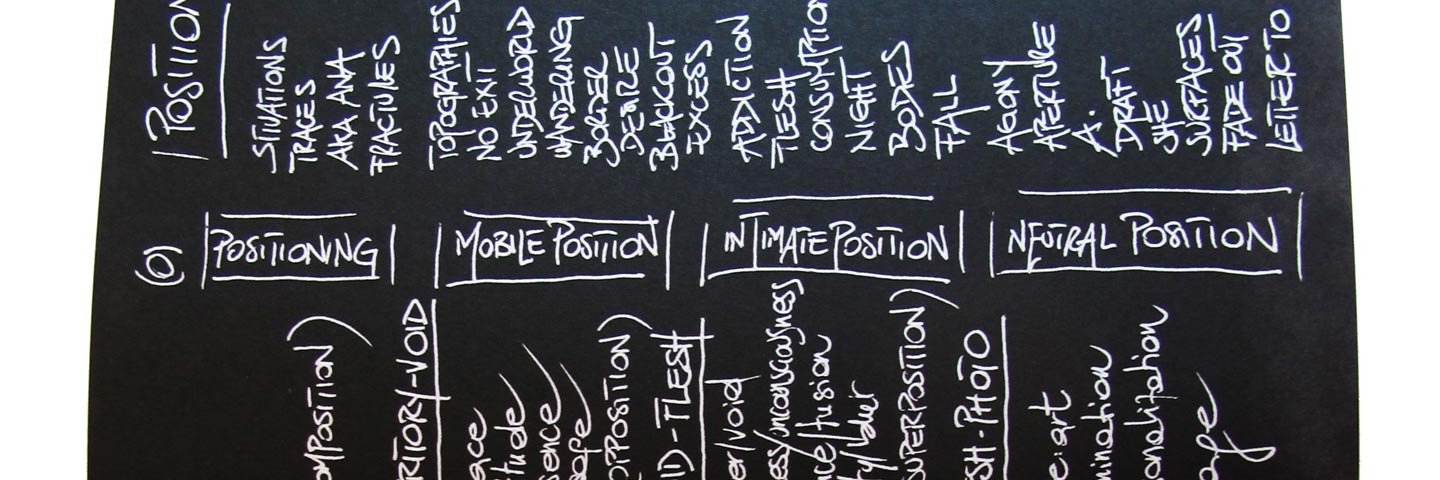 POSITION
SITUATIONS
TRACES
AKA ANA
FRACTURES
TOPOGRAPHIES
NO EXIT
UNDERWORLD
WANDERING
BORDER
DESIRE
BLACKOUT
EXCESS
ADDICTION
FLESH
CONSUMPTION
NIGHT
BODIES
FALL
AGONY
APERTURE
A.
DRAFT
SHE
SURFACES
FADE OUT
LETTER TO
(0)
POSITIONING
MOBILE POSITION
INTIMATE POSITION
NEUTRAL POSITION
OMPOSITION)
RITORY-VOID
ence
PPOSITION)
ID-FLESH
er/void
ess/unconsciousness
ce/fusion
SUPERPOSITION)
SH-PHOTO
e:art
mination